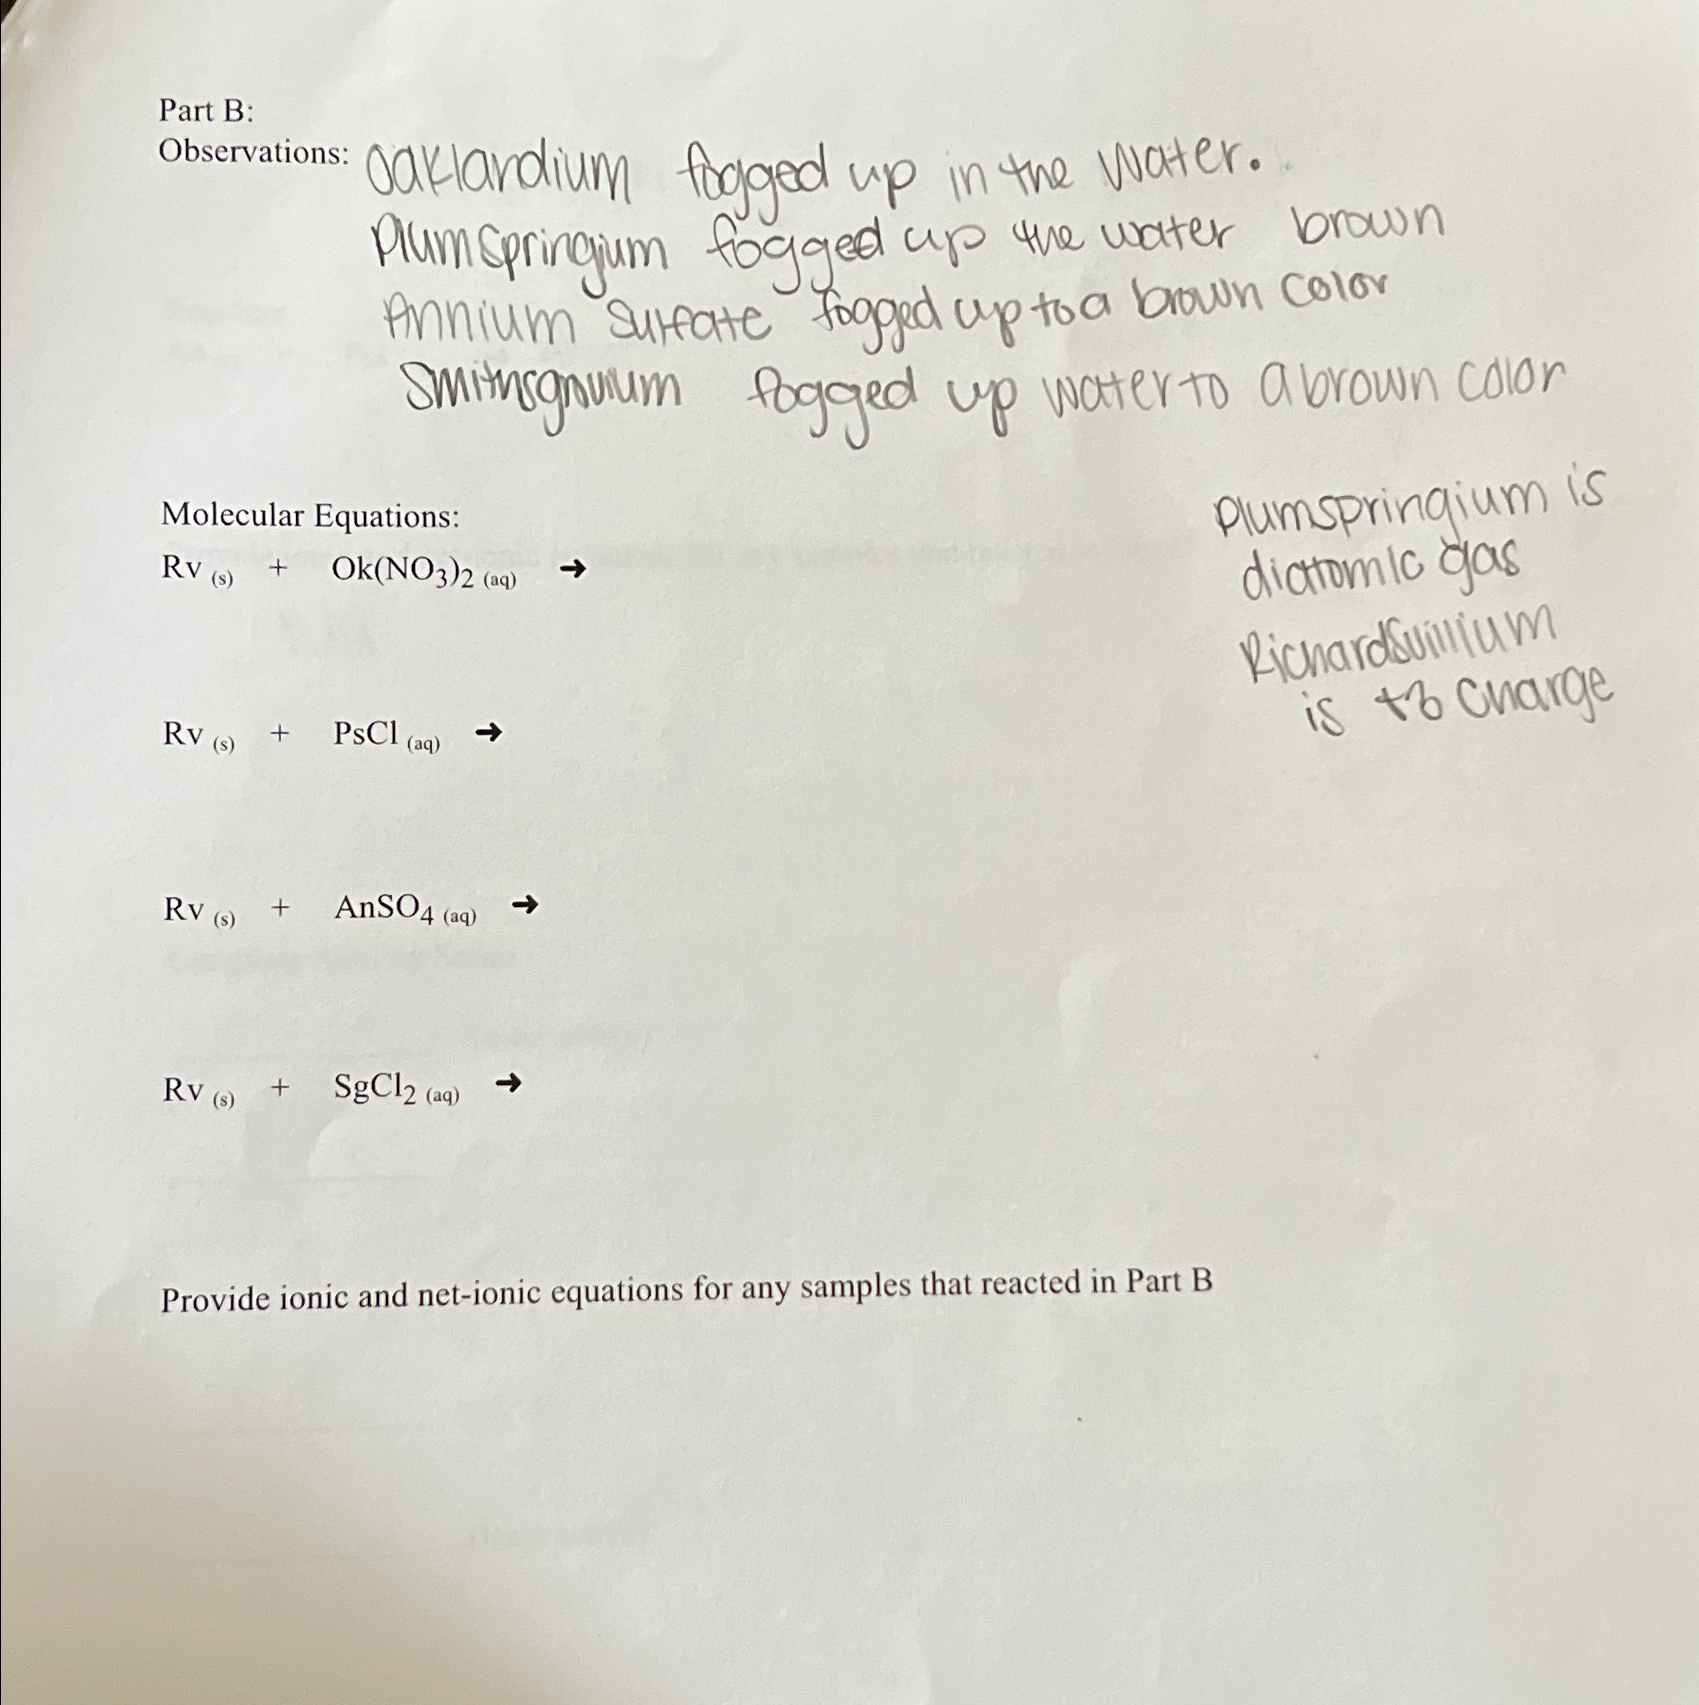 Part B:
Observations: Oaklandium fogged up in the water.
Plumspringium fogged up the water brown
Annium Surfate fogged up to a brown color
Smithsgrovium fogged up water to a brown color
Molecular Equations:
Plumspringium is
diatomic gas
Richardsvillium
is +3 charge
Rv (s) + Ok(NO3)2 (aq) →
Rv (s) + PsCl (aq) →
Rv (s) + AnSO4 (aq) →
Rv (s) + SgCl2 (aq) →
Provide ionic and net-ionic equations for any samples that reacted in Part B